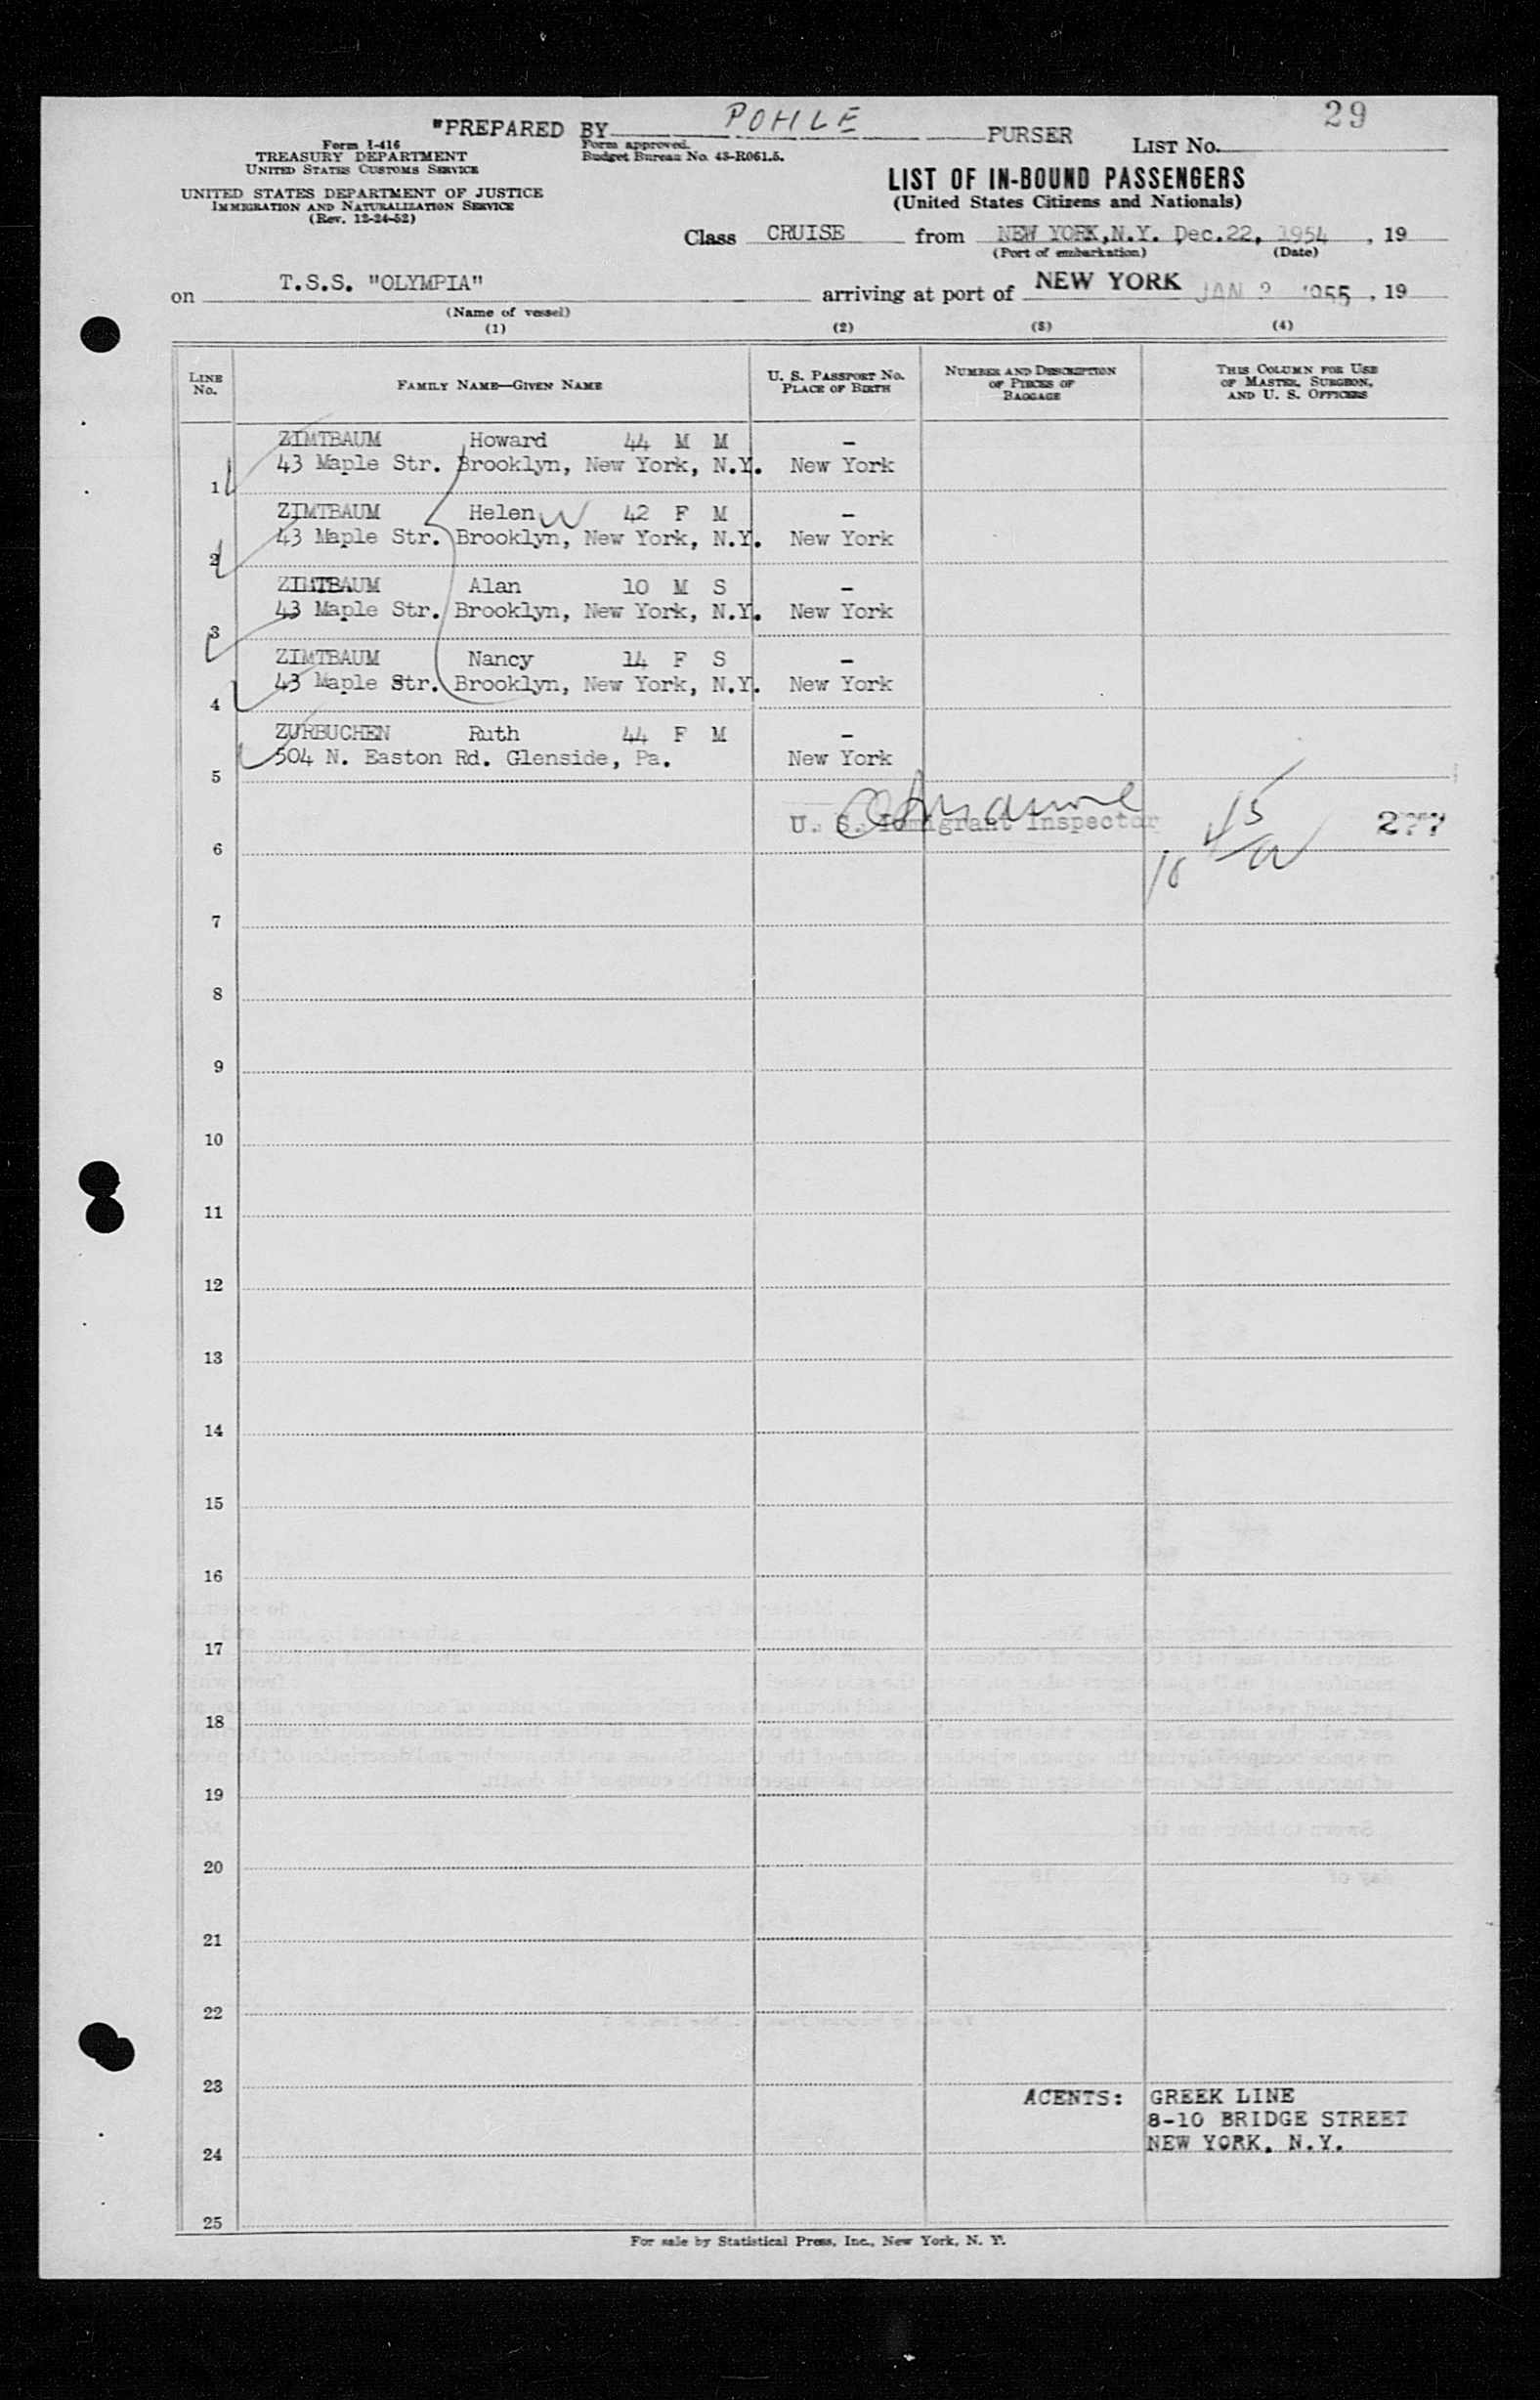 29
"PREPARED BY POHLE PURSER
Form I-416
TREASURY DEPARTMENT
UNITED STATES CUSTOMS SERVICE
Form approved.
Budget Bureau No. 43-R061.5.
LIST No.
UNITED STATES DEPARTMENT OF JUSTICE
IMMIGRATION AND NATURALIZATION SERVICE
(Rev. 12-24-52)
LIST OF IN-BOUND PASSENGERS
(United States Citizens and Nationals)
Class CRUISE from NEW YORK,N.Y. Dec.22, 1954 , 19
(Port of embarkation) (Date)
on T.S.S. "OLYMPIA" arriving at port of NEW YORK JAN 1955 , 19
(Name of vessel)
(1) (2) (3) (4)
LINE No. FAMILY NAME—GIVEN NAME U. S. PASSPORT No. PLACE OF BIRTH NUMBER AND DESCRIPTION OF PIECES OF BAGGAGE THIS COLUMN FOR USE OF MASTER, SURGEON, AND U. S. OFFICERS
ZIMTBAUM Howard 44 M M –
43 Maple Str. Brooklyn, New York, N.Y. New York
1
ZIMTBAUM Helen W 42 F M –
43 Maple Str. Brooklyn, New York, N.Y. New York
2
ZIMTBAUM Alan 10 M S –
43 Maple Str. Brooklyn, New York, N.Y. New York
3
ZIMTBAUM Nancy 14 F S –
43 Maple Str. Brooklyn, New York, N.Y. New York
4
ZURBUCHEN Ruth 44 F M –
504 N. Easton Rd. Glenside, Pa. New York
5
U. S. Immigrant Inspector 277
6
7
8
9
10
11
12
13
14
15
16
17
18
19
20
21
22
23
AGENTS: GREEK LINE
8-10 BRIDGE STREET
NEW YORK, N.Y.
24
25
For sale by Statistical Press, Inc., New York, N. Y.